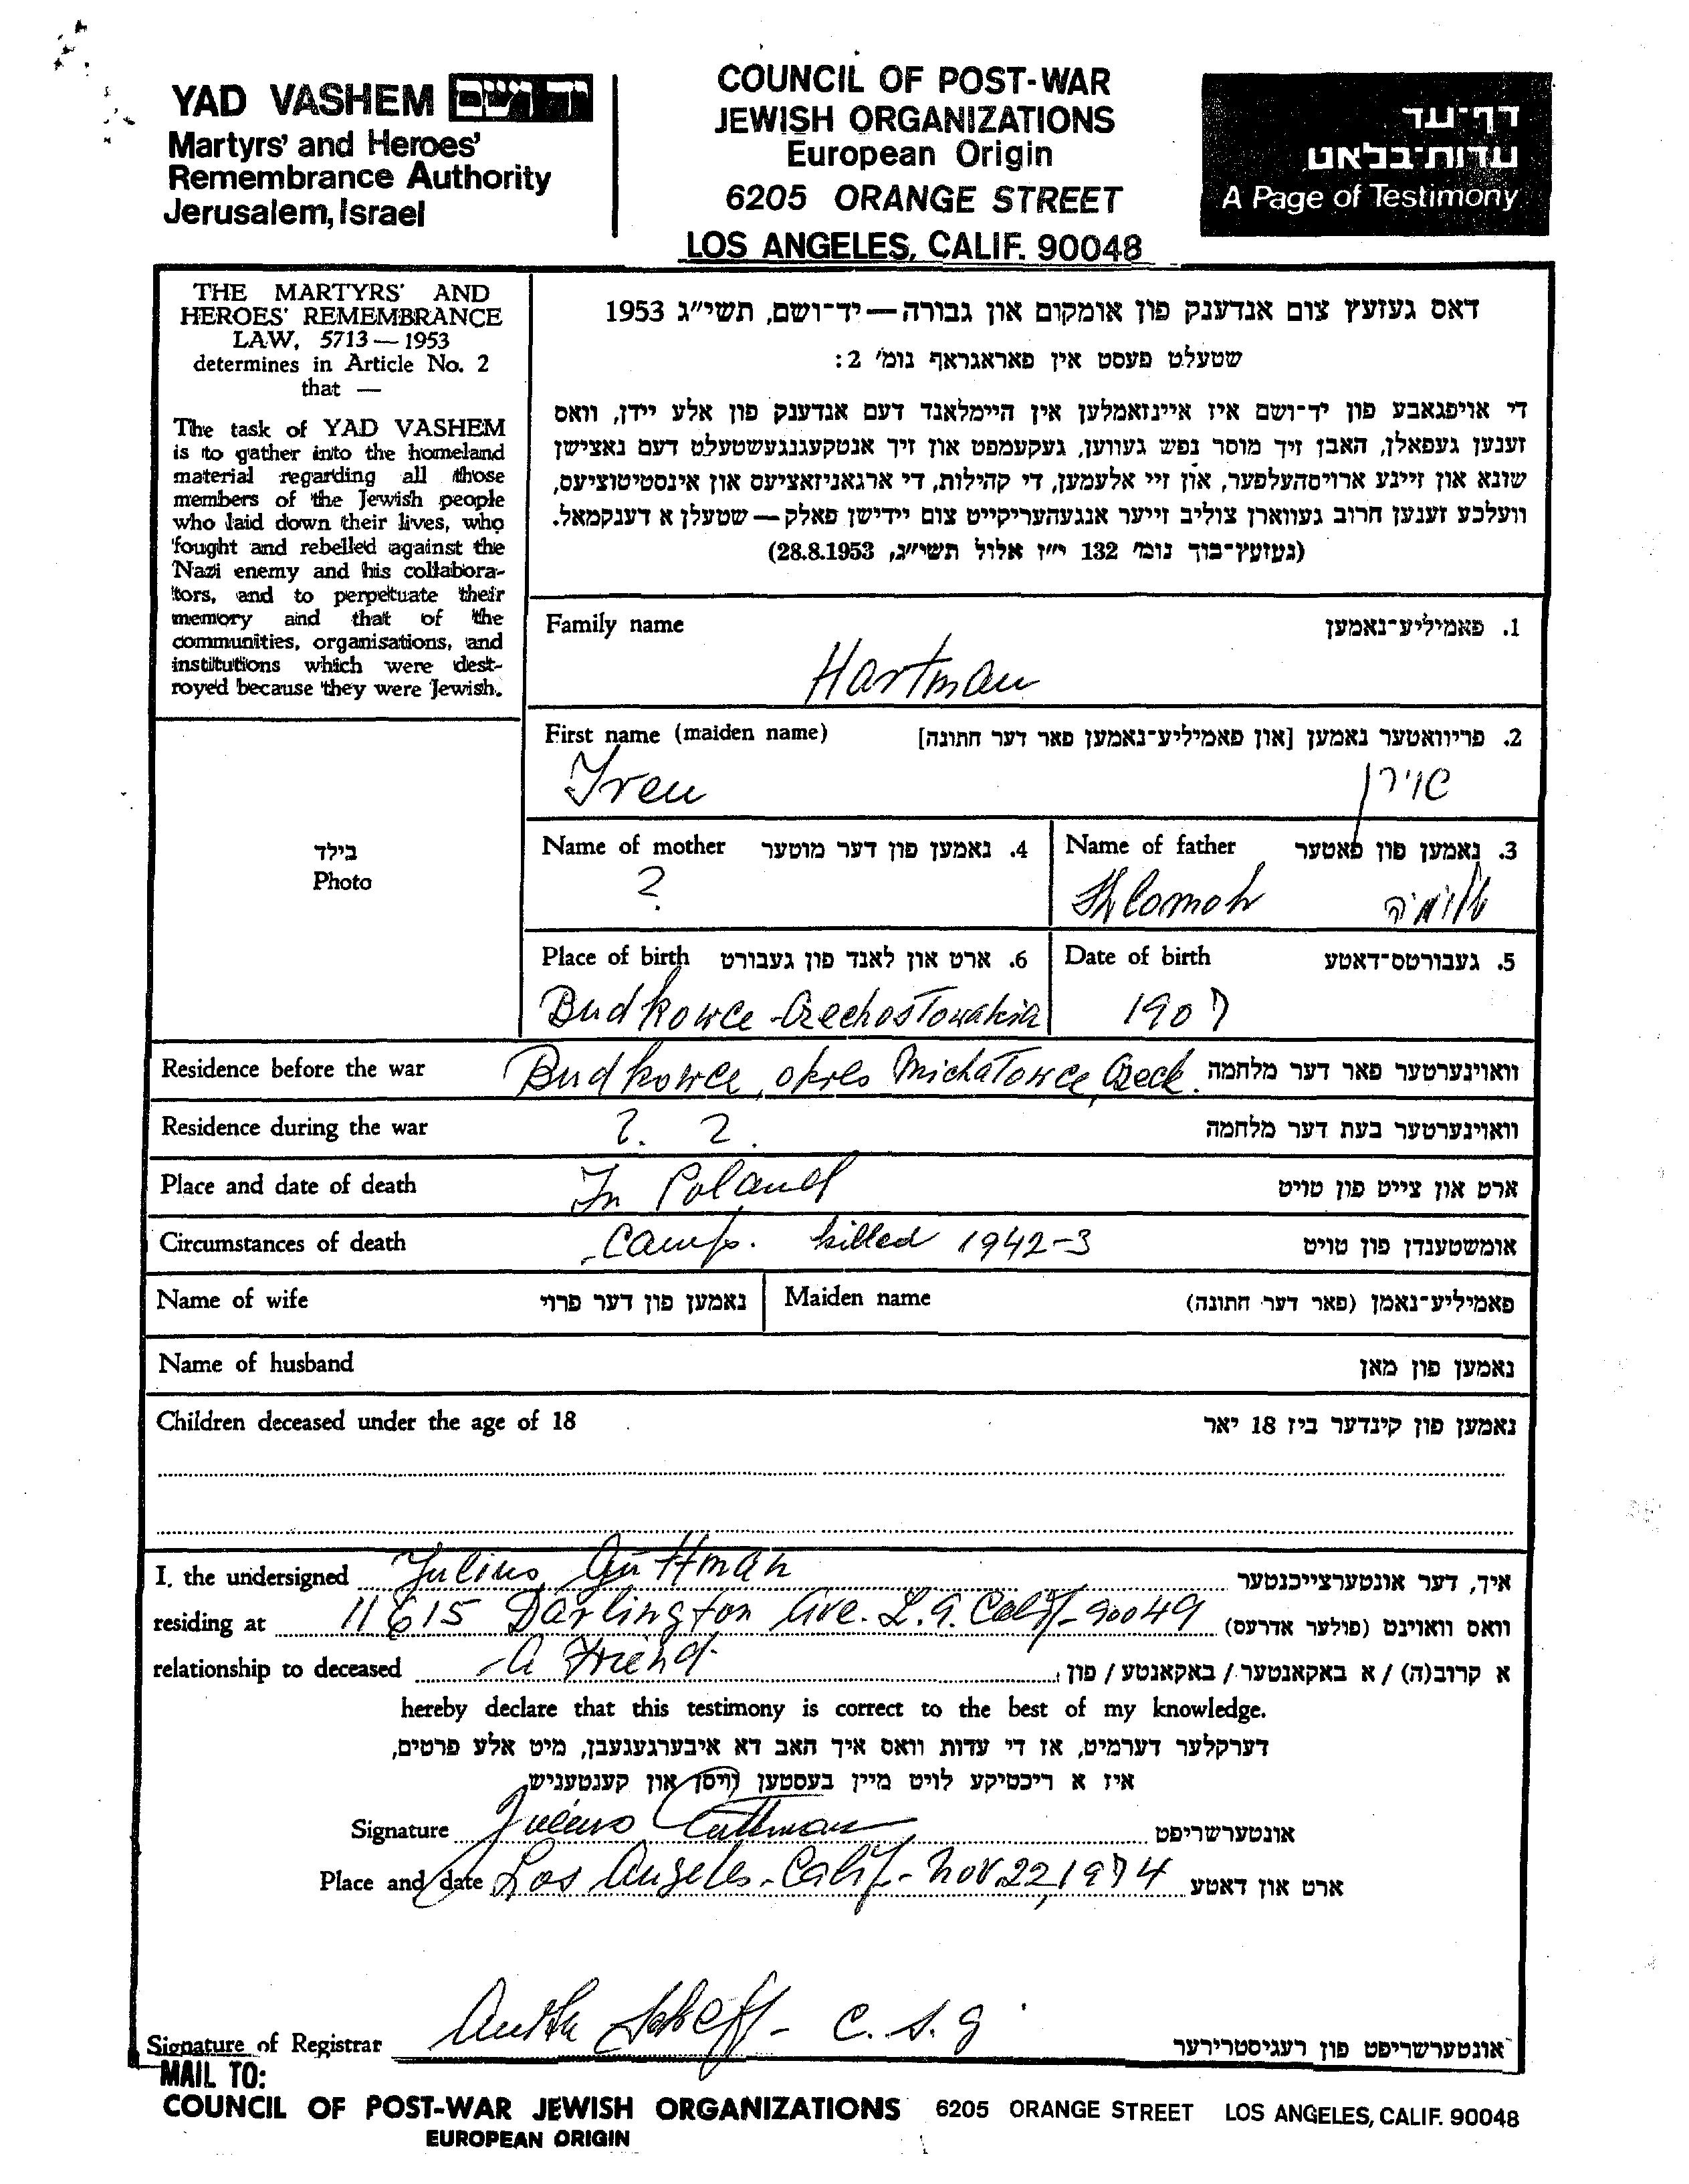 YAD VASHEM יד ושם
Martyrs' and Heroes'
Remembrance Authority
Jerusalem, Israel
COUNCIL OF POST-WAR
JEWISH ORGANIZATIONS
European Origin
6205 ORANGE STREET
LOS ANGELES, CALIF. 90048
דף-עד
עדות-בלאט
A Page of Testimony
THE MARTYRS' AND
HEROES' REMEMBRANCE
LAW, 5713 — 1953
determines in Article No. 2
that —
The task of YAD VASHEM
is to gather into the homeland
material regarding all those
members of the Jewish people
who laid down their lives, who
fought and rebelled against the
Nazi enemy and his collabora-
tors, and to perpetuate their
memory and that of the
communities, organisations, and
institutions which were dest-
royed because they were Jewish.
דאס געזעץ צום אנדענק פון אומקום און גבורה — יד-ושם, תשי"ג 1953
שטעלט פעסט אין פאראגראף נומ' 2:
די אויפגאבע פון יד-ושם איז איינזאמלען אין היימלאנד דעם אנדענק פון אלע יידן, וואס
זענען געפאלן, האבן זיך מוסר נפש געווען, געקעמפט און זיך אנטקעגנגעשטעלט דעם נאצישן
שונא און זיינע ארויסהעלפער, און זיי אלעמען, די קהילות, די ארגאניזאציעס און אינסטיטוציעס,
וועלכע זענען חרוב געווארן צוליב זייער אנגעהעריקייט צום יידישן פאלק — שטעלן א דענקמאל.
(געזעץ-בוך נומ' 132 י"ז אלול תשי"ג, 28.8.1953)
Family name 1. פאמיליע-נאמען
Hartman
First name (maiden name) 2. פריוואטער נאמען [און פאמיליע-נאמען פאר דער חתונה]
Iren
בילד
Photo
Name of mother 4. נאמען פון דער מוטער
?
Name of father 3. נאמען פון פאטער
Shlomoh
Place of birth 6. ארט און לאנד פון געבורט
Budkowce - Czechoslowakia
Date of birth 5. געבורטס-דאטע
1907
Residence before the war Budkowce, okres Michalowce, Czeck. וואוינערטער פאר דער מלחמה
Residence during the war ?. ?. וואוינערטער בעת דער מלחמה
Place and date of death In Poland ארט און צייט פון טויט
Circumstances of death Camp. killed 1942-3 אומשטענדן פון טויט
Name of wife נאמען פון דער פרוי Maiden name פאמיליע-נאמן (פאר דער חתונה)
Name of husband נאמען פון מאן
Children deceased under the age of 18 נאמען פון קינדער ביז 18 יאר
I, the undersigned Julius Guttman איך, דער אונטערצייכנטער
residing at 11615 Darlington Ave. L.A. Calif- 90049 וואס וואוינט (פולער אדרעס)
relationship to deceased - A Friend. א קרוב(ה) / א באקאנטער / באקאנטע / פון
hereby declare that this testimony is correct to the best of my knowledge.
דערקלער דערמיט, אז די עדות וואס איך האב דא איבערגעגעבן, מיט אלע פרטים,
איז א ריכטיקע לויט מיין בעסטען וויסן און קענטעניש.
Signature Julius Guttman אונטערשריפט
Place and date Los Angeles - Calif - Nov. 22, 1974 ארט און דאטע
Signature of Registrar אונטערשריפט פון רעגיסטרירער
MAIL TO:
COUNCIL OF POST-WAR JEWISH ORGANIZATIONS 6205 ORANGE STREET LOS ANGELES, CALIF. 90048
EUROPEAN ORIGIN